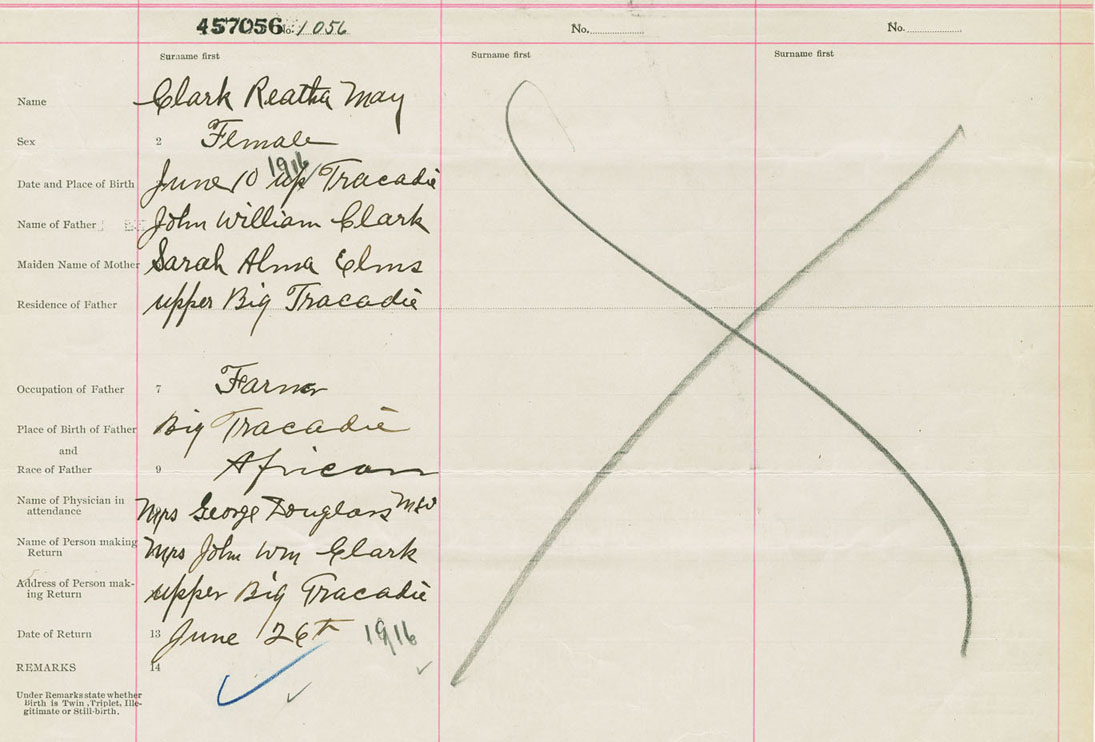 457056 No. 1056 No. No.
Surname first Surname first Surname first
Name Clark Reatha May
Sex 2 Female
Date and Place of Birth June 10 1916 up Tracadie
Name of Father John William Clark
Maiden Name of Mother Sarah Alma Elms
Residence of Father upper Big Tracadie
Occupation of Father 7 Farmer
Place of Birth of Father Big Tracadie
and
Race of Father 9 African
Name of Physician in
attendance Mrs George Douglass
Name of Person making
Return Mrs John Wm Clark
Address of Person mak-
ing Return upper Big Tracadie
Date of Return 13 June 26th 1916
REMARKS 14
Under Remarks state whether
Birth is Twin, Triplet, Ille-
gitimate or Still-birth.